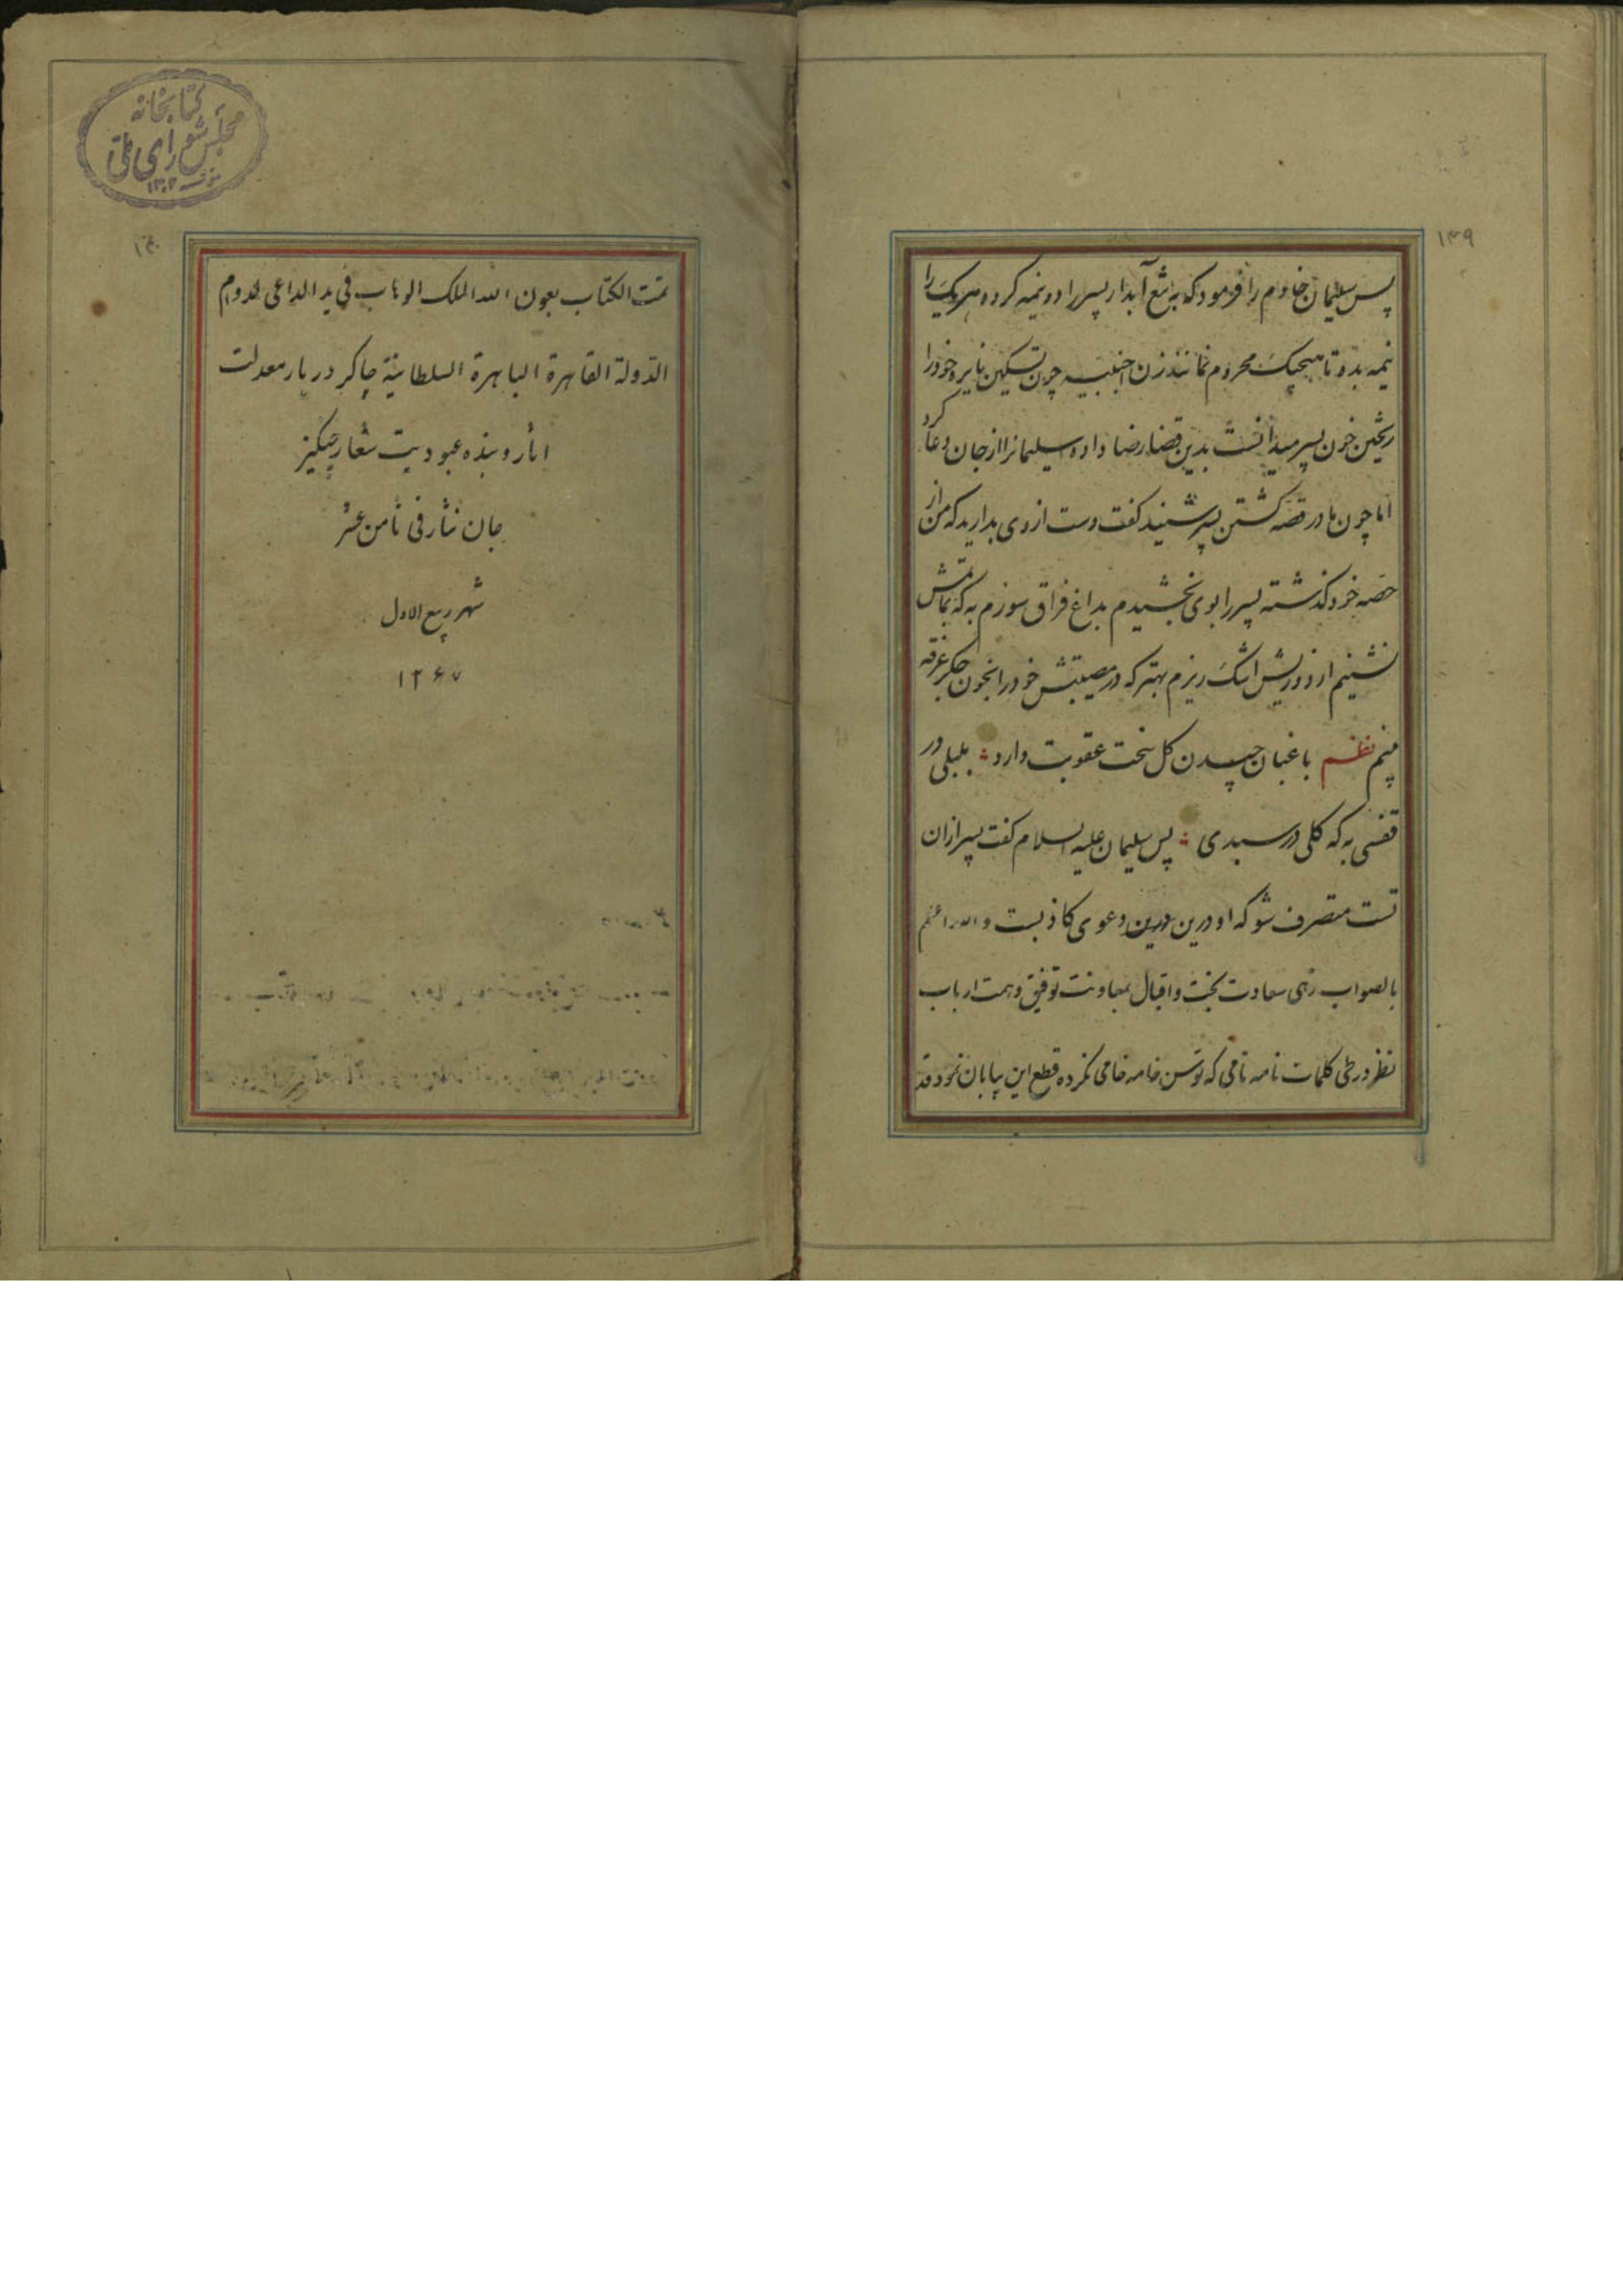 ۱۳۹
پس سلیمان خادم را فرمود که به تیغ آبدار پسر را دو نیمه کرده هریک را
نیمه بده تا هیچیک محروم نمانند زن اجنبیه چون تسکین نایره خود را
ریختن خون پسر میدانست بدین قضا رضا داد و سلیمانرا از جان دعا کرد
اما چون مادر قصه کشتن پسر شنید کفت دست از وی بدارید که من از
حصه خود کذشته پسر را بوی بخشیدم بداغ فراق سوزم به که بماتمش
نشینم از دوریش اشک ریزم بهتر که در مصیبتش خود را بخون جکر غرقه
بینم نظم باغبان چیدن کل سخت عقوبت دارد بلبلی در
قفسی به که کلی در سبدی پس سلیمان علیه السلام کفت پسر از ان
تست متصرف شو که او درین درین دعوی کاذبست و الله اعلم
بالصواب زهی سعادت بخت و اقبال بمعاونت توفیق و همت ارباب
نظر در طی کلمات نامه نامی که توسن خامه خامی نکرده قطع این بیابان نمود قد
کتابخانه
مجلس شورای ملی
۱۳۰۲
۱۴۰
تمت الکتاب بعون الله الملک الوهاب فی ید الداعی لدوام
الدولة القاهرة الباهرة السلطانیة چاکر دربار معدلت
اثار و بنده عبودیت شعار چنکیز
جان نثار فی ثامن عشر
شهر ربیع الاول
۱۲۶۷